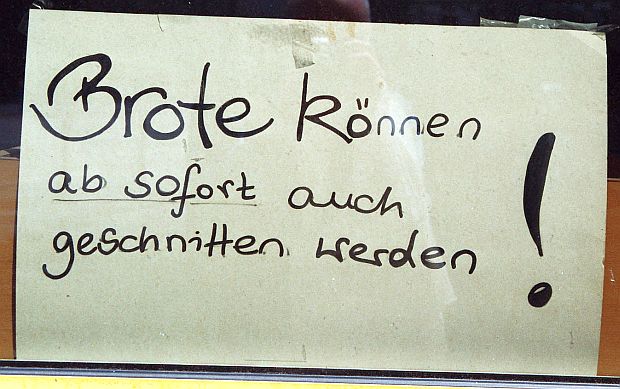 Brote können
ab sofort auch
geschnitten werden !